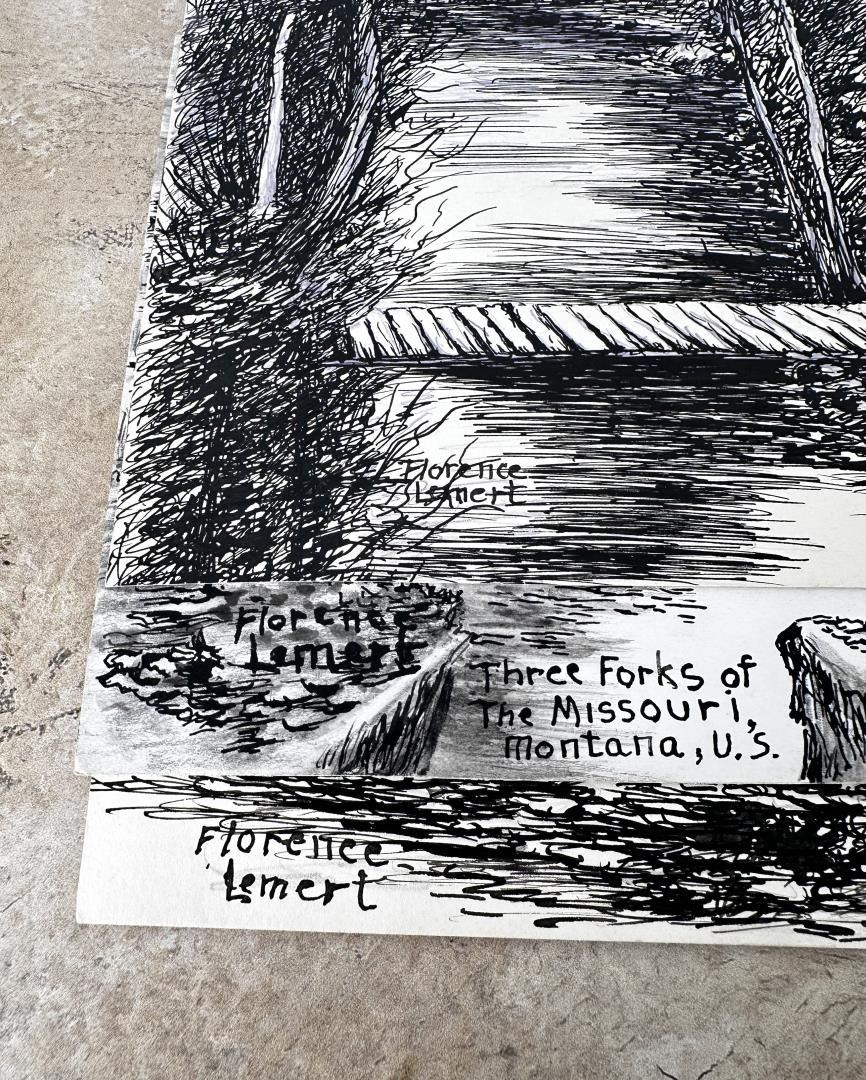 Florence
Lemert
Florence
Lemert
Three Forks of
The Missouri,
Montana, U.S.
Florence
Lemert